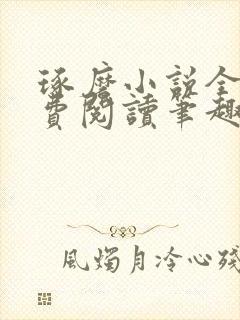 琢磨小説全
費閱讀筆趣
風燭月冷心殘